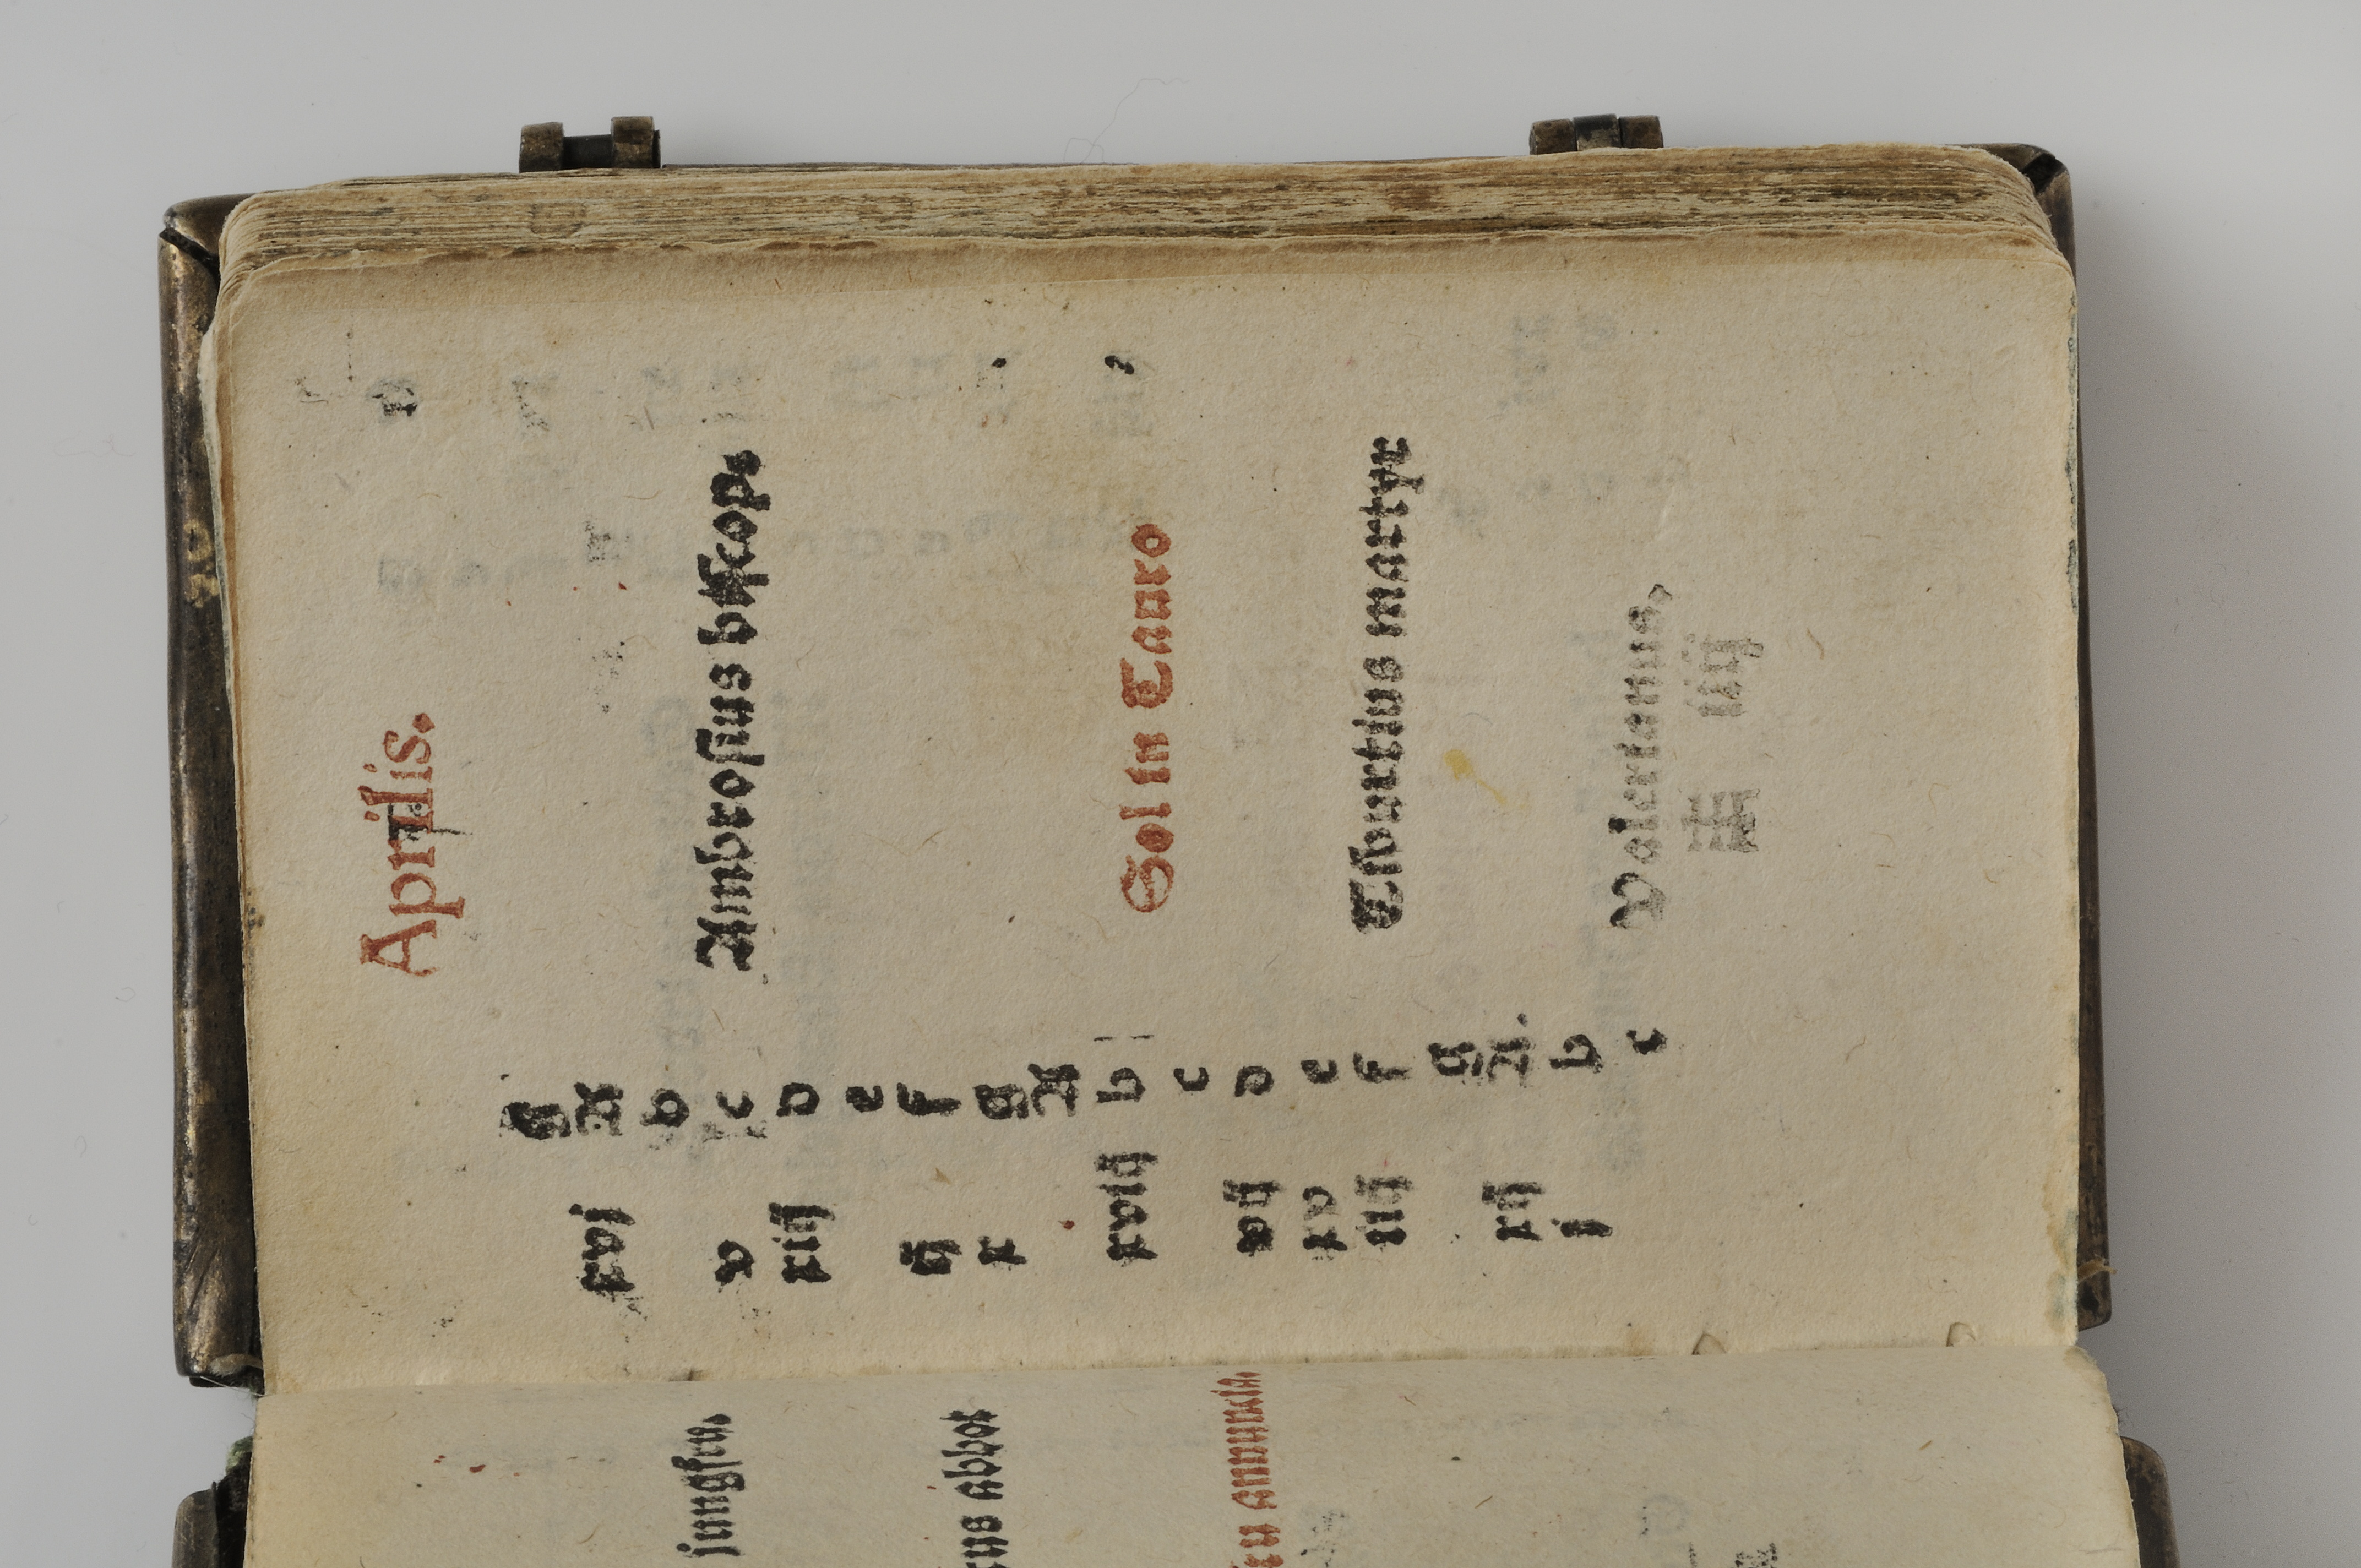 Aprilis.
g
xvj A
b
v c Ambroſius biſcop.
xiij d
e
ij f
x g
A
xviij b Sol in Tauro
c
vij d
xv e
iiij f Tiburtius martyr
g
xij A
j b
c Valerianus,
iiij
jungfru,
abbot
annuncia,